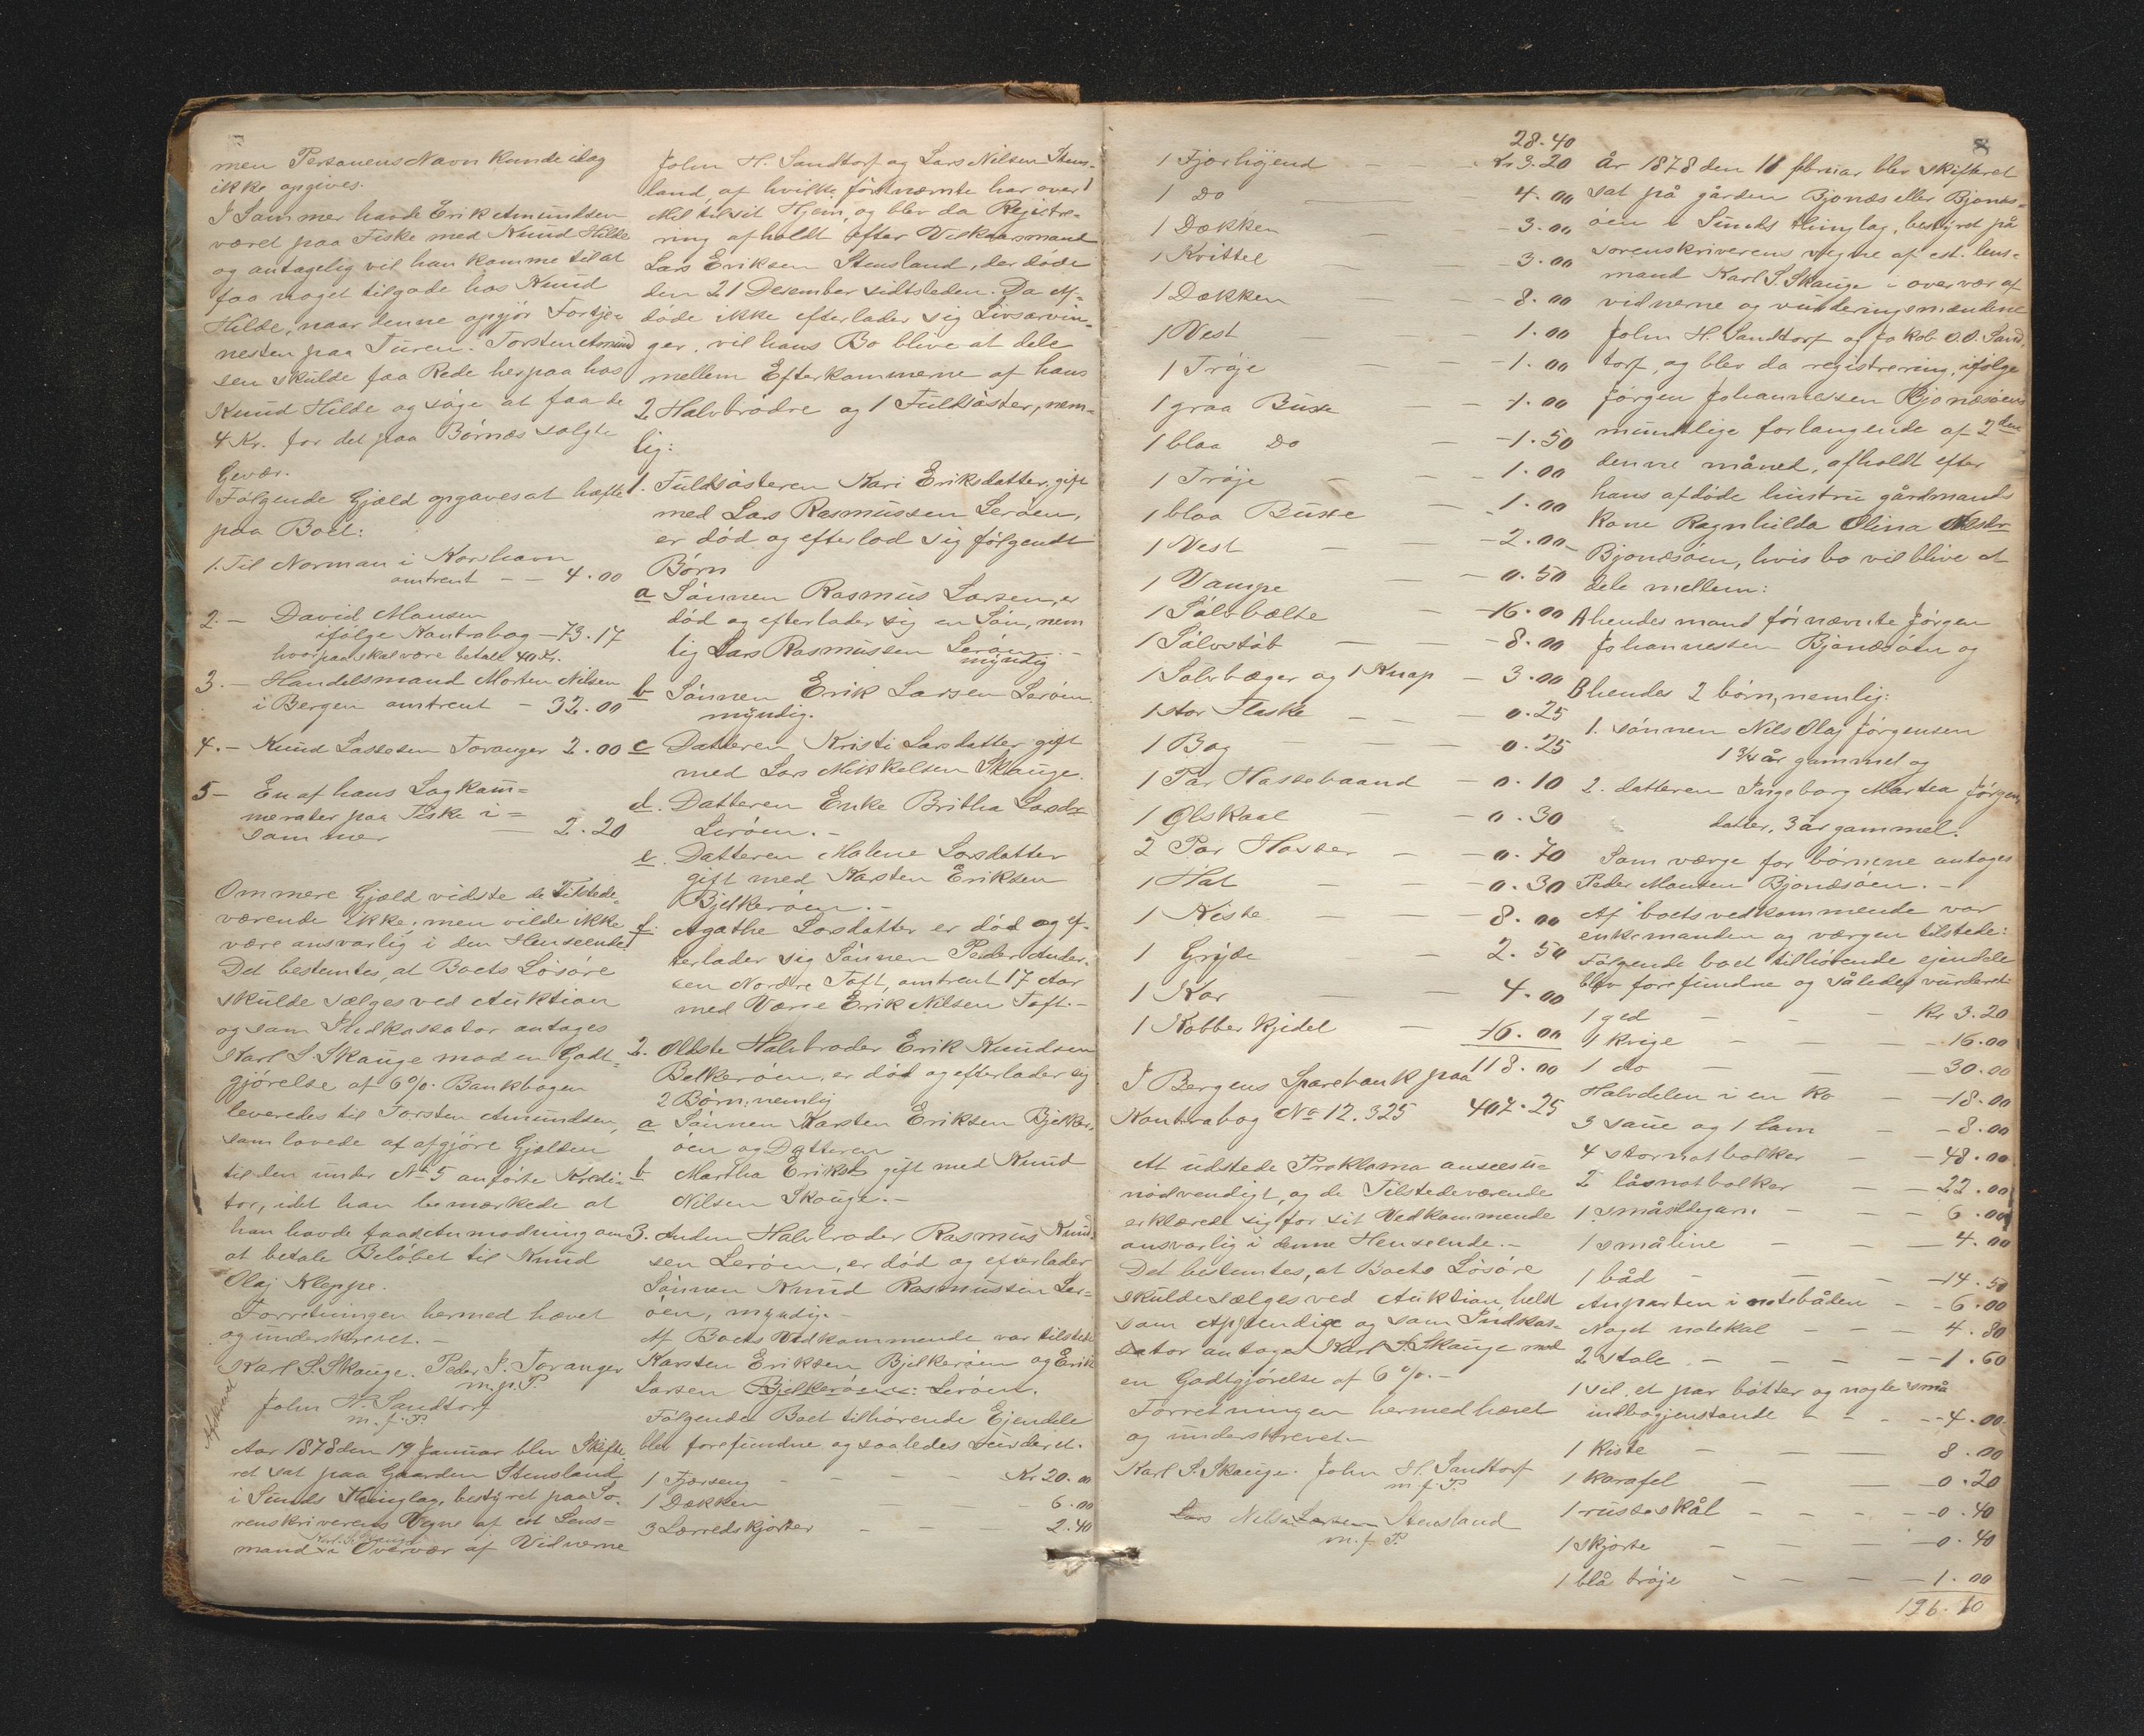 men Personens Navn kunde idag
ikke opgives.
I Sommer havde Erik Amundsen
været paa Fiske med Knud Hilde
og antagelig vil han komme til at
faa noget tilgode hos Knud
Hilde, naar denne opgjør Fortje-
nesten paa Turen. Torsten Amund
sen skulde faa Rede herpaa hos
Knud Hilde og søge at faa de
4 Kr. for det paa Børnæs solgte
Gevær.
Følgende Gjæld opgaves at hæfte
paa Boet:
1. Til Norman i Korshavn
omtrent - - 4.00
2. - David Monsen
ifølge Kontrabog - 73.17
hvorpaa skal være betalt 40 Kr.
3. - Handelsmand Morten Nilsen
i Bergen omtrent - 32.00
4. - Knud Lassesen Toranger 2.00
5 - En af hans Lagkam=
merater paa Fiske i =
sommer - 2.20
Om mere Gjæld vidste de Tilstede-
værende ikke, men vilde ikke
være ansvarlig i den Henseende.
Det bestemtes, at Boets Løsøre
skulde sælges ved Auktion
og som Indkassator antages
Karl S. Skauge mod en Godt-
gjørelse af 6%. Bankbogen
leveredes til Torsten Amundsen,
som lovede at afgjøre Gjælden
til den under No 5 anførte Kredi-
tor, idet han bemærkede at
han havde faaet Anmodning om
at betale Beløbet til Knud
Olaj Kleppe.
Forretningen hermed hævet
og underskrevet. -
Karl S. Skauge. Peder J. Toranger
m.p.P.
John H. Sandtorf
m.f.P.
Afskrevet
Aar 1878 den 19 Januar blev Skifte
ret sat paa Gaarden Stensland
i Sunds Thinglag, bestyret paa So-
renskriverens Vegne af est Lens=
Karl S. Skauge
mand i Overvær af Vidnerne
John H. Sandtorf og Lars Nilsen Stens-
land, af hvilke førstnævnte har over 1
Mil til sit Hjem, og blev da Registre-
ring afholdt efter Vilkaarsmand
Lars Eriksen Stensland, der døde
den 21 Desember sidstleden. Da Af-
døde ikke efterlader sig Livsarvin-
ger, vil hans Bo blive at dele
mellem Efterkommerne af hans
2 Halvbrødre og 1 Fuldsøster, nem-
lig:
1. Fuldsøsteren Kari Eriksdatter, gift
med Lars Rasmussen Lerøen,
er død og efterlod sig følgende
Børn
a Sønnen Rasmus Larsen, er
død og efterlader sig en Søn, nem
lig Lars Rasmussen Lerøen. -
myndig
b Sønnen Erik Larsen Lerøen
myndig.
c Datteren Kristi Larsdatter gift
med Lars Mikkelsen Skauge.
d. Datteren Enke Britha Larsdr
Lerøen. -
e. Datteren Malene Larsdatter
gift med Karsten Eriksen
Bjelkerøen. -
f. Agathe Larsdatter er død og ef-
terlader sig Sønnen Peder Ander-
sen Nordre Toft, omtrent 17 Aar
med Værge Erik Nilsen Toft. -
2. Ældste Halvbroder Erik Knudsen
Belkerøen, er død og efterlader sig
2 Børn, nemlig
a Sønnen Karsten Eriksen Bjelker-
øen og Datteren
b Martha Eriksdr gift med Knud
Nilsen Skauge. -
3. Anden Halvbroder Rasmus Knud-
sen Lerøen, er død og efterlader
Sønnen Knud Rasmussen Ler-
øen, myndig. -
Af Boets Vedkommende var tilstede
Karsten Eriksen Bjelkerøen og Erik
Larsen Bjelkerøen: Lerøen.
Følgende Boet tilhørende Ejendele
blev forefundne og saaledes vurderet.
1 Fjærseng - - - - Kr 20.00
1 Dækken - - - 6.00
3 Lærredskjorter - - - 2.40
28.40
1 Fjærhøjend - - Kr 3.20
1 Do - 4.00
1 Dækken - - 3.00
1 Kvittel - - 3.00
1 Dækken - - 8.00
1 Vest - - 1.00
1 Trøje - - 1.00
1 graa Buxe - - 1.00
1 blaa Do - 1.50
1 Trøje - - 1.00
1 blaa Buxe - - 1.00
1 Vest - - 2.00
1 Vampe - - 0.50
1 Sølvbælte - - 16.00
1 Sølvstøb - - 8.00
1 Sølvbæger og 1 Knap - 3.00
1 stor Flaske - - - 0.25
1 Bog - - - 0.25
1 Par Hossebaand - 0.10
1 Ølskaal - - 0.30
2 Par Hosser - - 0.70
1 Hat - - - 0.30
1 Kiste - - - 8.00
1 Gryde - - 2.50
1 Kar - - 4.00
1 Kobberkjedel - 16.00
118.00
I Bergens Sparebank paa
Kontrabog No 12.325 407.25
At udstede Proklama ansees u-
nødvendigt, og de Tilstedeværende
erklærede sig for sit Vedkommende
ansvarlig i denne Henseende. -
Det bestemtes, at Boets Løsøre
skulde sælges ved Auktion, helst
som Appendix og som Indkas-
sator antages Karl S. Skauge mod
en Godtgjørelse af 6%. -
Forretningen hermed hævet
og underskrevet. -
Karl S. Skauge. John H. Sandtorf
m.f.P.
Lars Nilsen Larsen Stensland
m.f.P.
8
År 1878 den 18 februar blev skifteret
sat på gården Bjonæs eller Bjonæs-
øen i Sunds thinglag, bestyret på
sorenskriverens vegne af est. lens-
mand Karl S. Skauge i overvær af
vidnerne og vurderingsmændene
John H. Sandtorf og Jakob O. O. Sand-
torf, og blev da registrering, ifølge
Jørgen Johannessen Bjonæsøens
mundtlige forlangende af 2den
denne måned, afholdt efter
hans afdøde hustru gårdmands
kone Ragnhilda Olina Nilsdr
Bjonæsøen, hvis bo vil blive at
dele mellem:
A hendes mand førnævnte Jørgen
Johannessen Bjonæsøen og
B hendes 2 børn, nemlig:
1. sønnen Nils Olaj Jørgensen
1 3/4 år gammel og
2. datteren Ingeborg Martea Jørgens
datter, 3 år gammel.
Som værge for børnene antages
Peder Monsen Bjonæsøen. -
Af boets vedkommende var
enkemanden og værgen tilstede:
Følgende boet tilhørende ejendele
blev forefundne og således vurderet:
1 ged - - - Kr 3.20
1 kvige - - - 16.00
1 do - - - 30.00
Halvdelen i en ko - - 18.00
3 saue og 1 lam - - 8.00
4 stornotbolker - - 48.00
2 låsnotbolker - - 22.00
1 småsildegarn - - - 6.00
1 småline - - - 4.00
1 båd - - - 14.50
Anparten i notebåden - - 6.00
Noget notekal - - - 4.80
2 stole - - - - 1.60
1 sil, et par bøtter og nogle små
indbogjenstande - - - 4.00
1 kiste - - - 8.00
1 karafel - - - 0.20
1 russeskål - - - - 0.40
1 skjorte - - - - 0.40
1 blå trøje - - - - 1.00
196.10